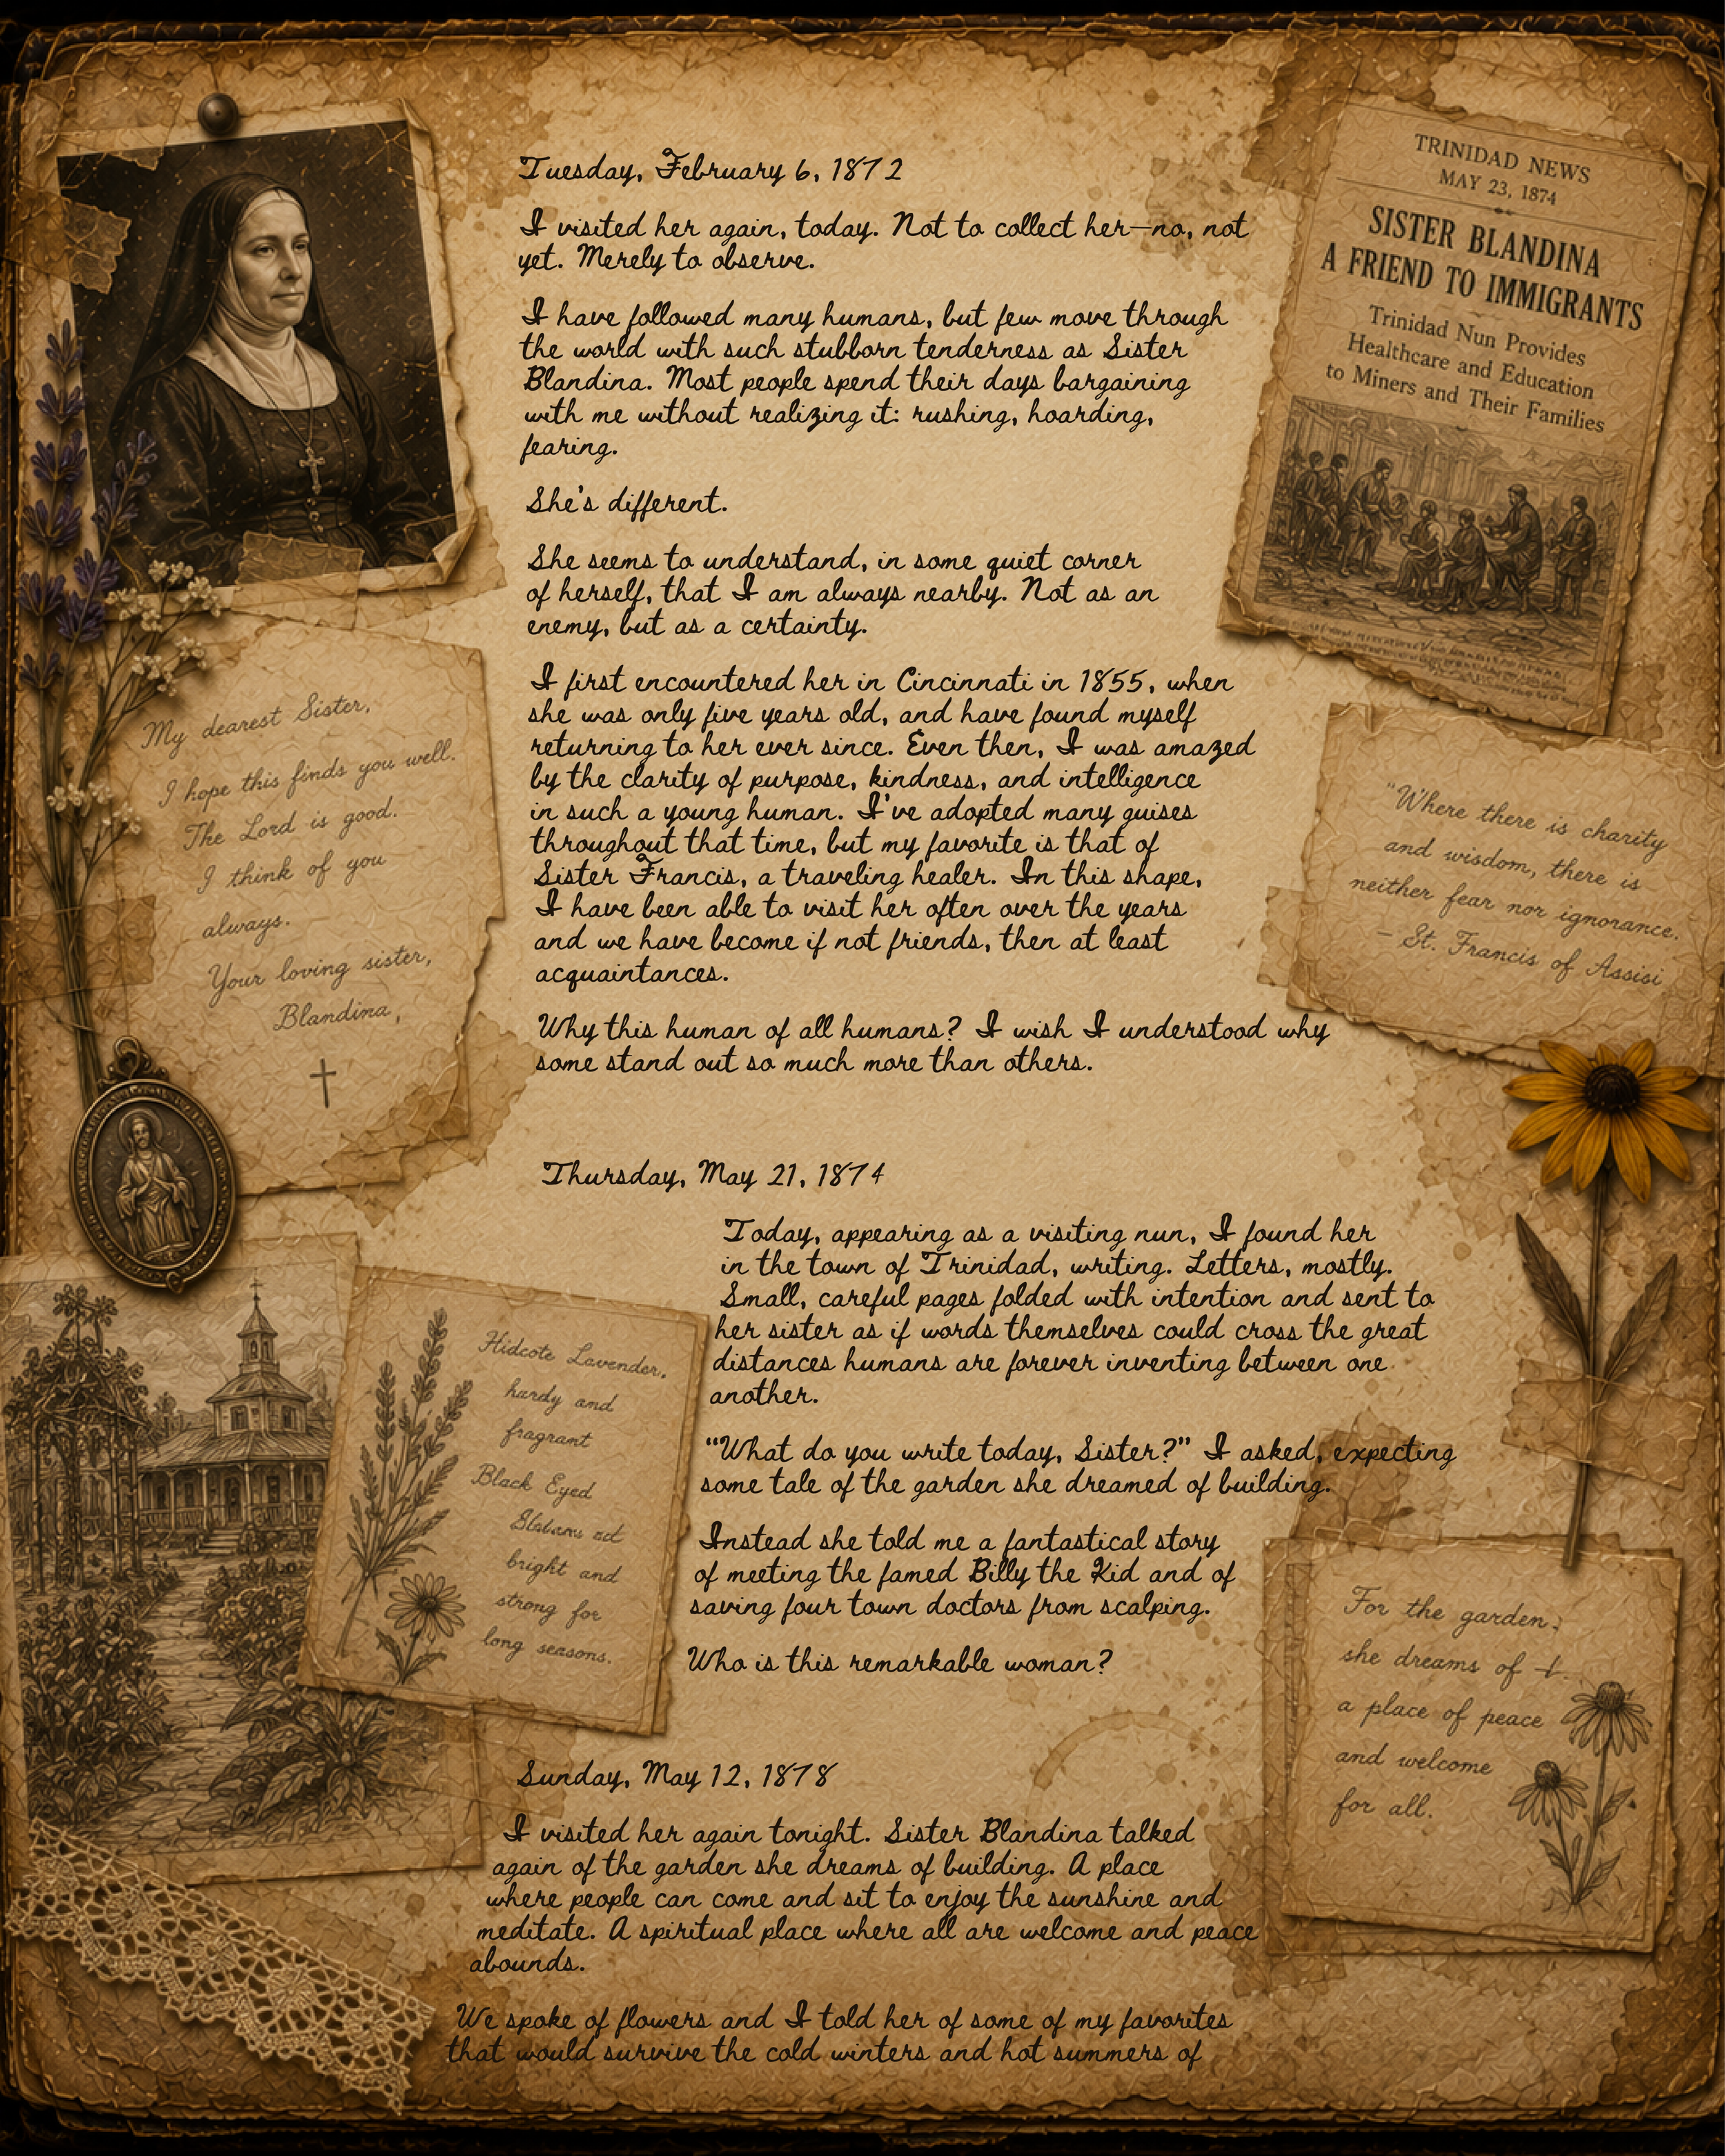 Tuesday, February 6, 1872
I visited her again, today. Not to collect her—no, not
yet. Merely to observe.
I have followed many humans, but few move through
the world with such stubborn tenderness as Sister
Blandina. Most people spend their days bargaining
with me without realizing it: rushing, hoarding,
fearing.
She's different.
She seems to understand, in some quiet corner
of herself, that I am always nearby. Not as an
enemy, but as a certainty.
I first encountered her in Cincinnati in 1855, when
she was only five years old, and have found myself
returning to her ever since. Even then, I was amazed
by the clarity of purpose, kindness, and intelligence
in such a young human. I've adopted many guises
throughout that time, but my favorite is that of
Sister Francis, a traveling healer. In this shape,
I have been able to visit her often over the years
and we have become if not friends, then at least
acquaintances.
Why this human of all humans? I wish I understood why
some stand out so much more than others.
Thursday, May 21, 1874
Today, appearing as a visiting nun, I found her
in the town of Trinidad, writing. Letters, mostly.
Small, careful pages folded with intention and sent to
her sister as if words themselves could cross the great
distances humans are forever inventing between one
another.
“What do you write today, Sister?” I asked, expecting
some tale of the garden she dreamed of building.
Instead she told me a fantastical story
of meeting the famed Billy the Kid and of
saving four town doctors from scalping.
Who is this remarkable woman?
Sunday, May 12, 1878
I visited her again tonight. Sister Blandina talked
again of the garden she dreams of building. A place
where people can come and sit to enjoy the sunshine and
meditate. A spiritual place where all are welcome and peace
abounds.
We spoke of flowers and I told her of some of my favorites
that would survive the cold winters and hot summers of
My dearest Sister,
I hope this finds you well.
The Lord is good.
I think of you
always.
Your loving sister,
Blandina,
Hidcote Lavender,
hardy and
fragrant
Black Eyed
bright and
strong for
long seasons.
TRINIDAD NEWS
MAY 23, 1874
SISTER BLANDINA
A FRIEND TO IMMIGRANTS
Trinidad Nun Provides
Healthcare and Education
to Miners and Their Families
"Where there is charity
and wisdom, there is
neither fear nor ignorance.
– St. Francis of Assisi
For the garden.
she dreams of
a place of peace
and welcome
for all.